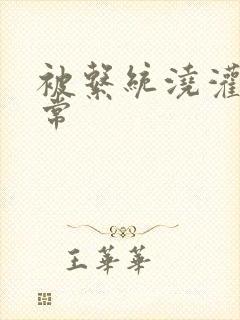 被繫統澆灌
常
王華華